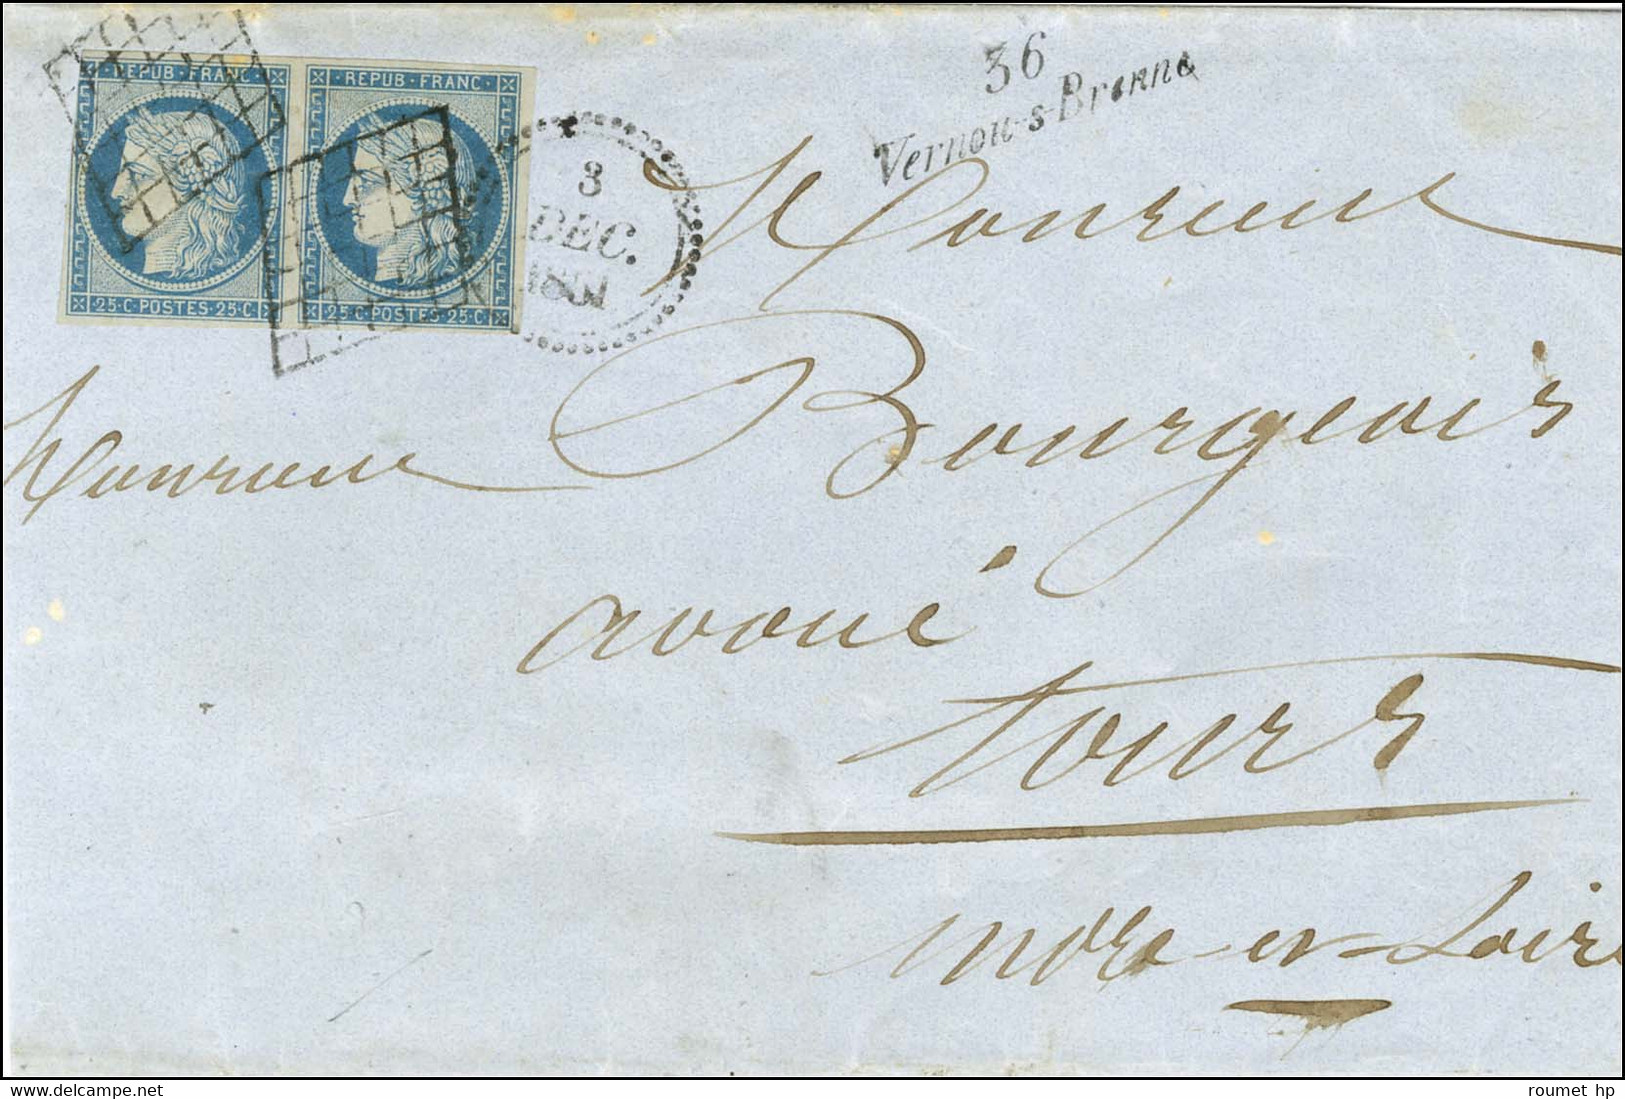 36
Vernou-s-Brenne
REPUB·FRANC·
REPUB·FRANC
3
DEC.
1851
25·C·POSTES·25·C
25·C·POSTES·25·C
Monsieur
Monsieur
Bourgeois
avoué
Tours
Indre-et-Loire
roumet hp